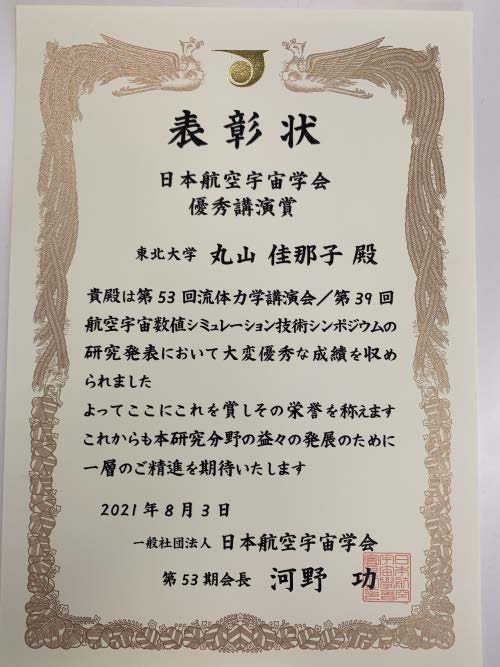 表彰状
日本航空宇宙学会
優秀講演賞
東北大学 丸山 佳那子 殿
貴殿は第53回流体力学講演会／第39回
航空宇宙数値シミュレーション技術シンポジウムの
研究発表において大変優秀な成績を収め
られました
よってここにこれを賞しその栄誉を称えます
これからも本研究分野の益々の発展のために
一層のご精進を期待いたします
2021年8月3日
一般社団法人 日本航空宇宙学会
第53期会長 河野 功